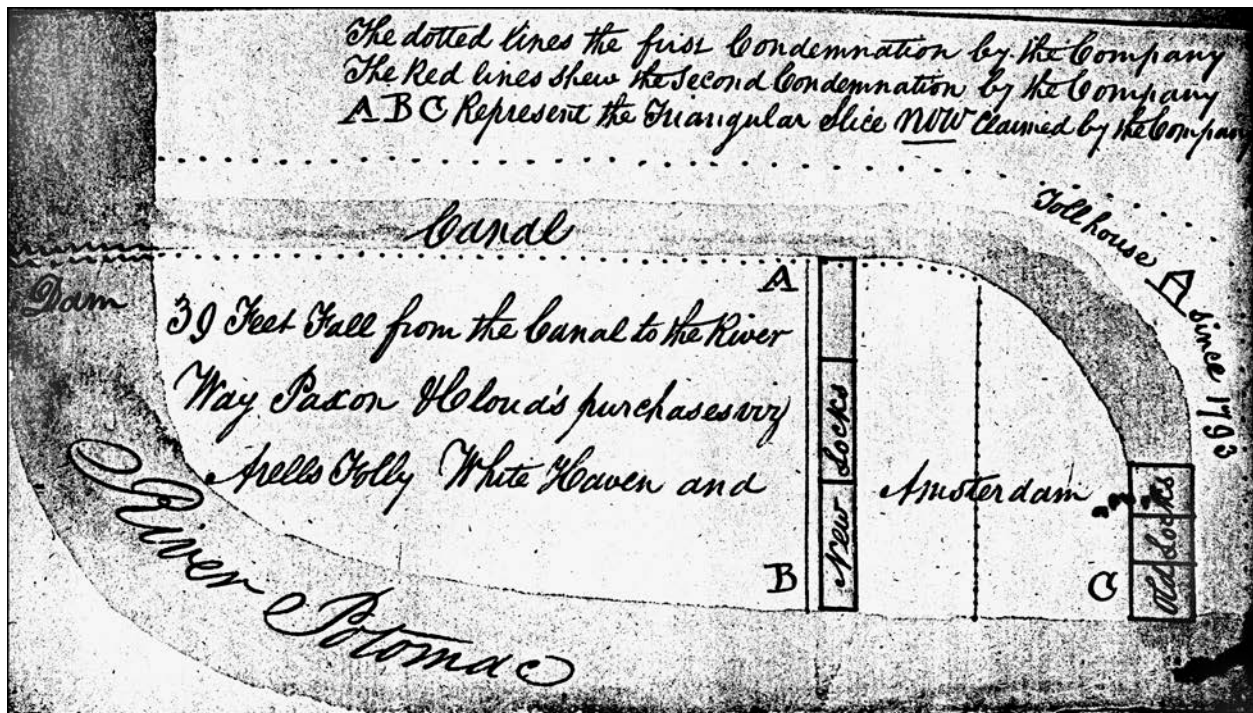 The dotted lines the first Condemnation by the Company
The Red lines shew the second Condemnation by the Company
A B C Represent the Triangular Slice NOW claimed by the Company
Canal
Tollhouse
since 1793
Dam
A
39 Feet Fall from the Canal to the River
Way Paxon & Cloud's purchases viz
Arells Folly White Haven and
Amsterdam
New Locks
Old Locks
B
C
River Potomac